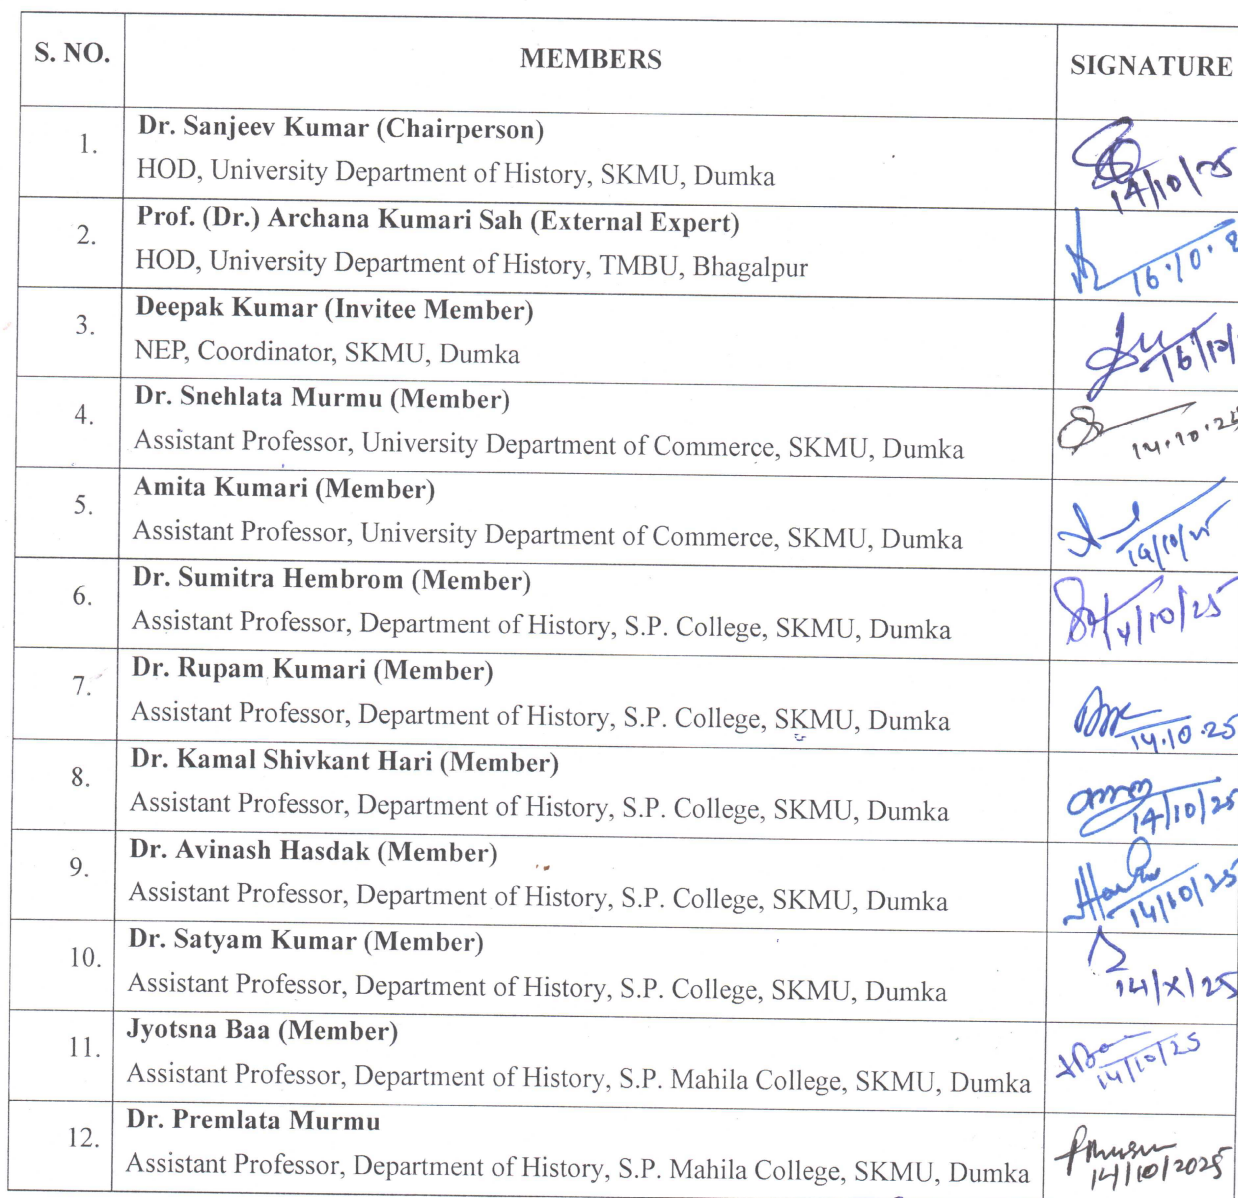 S. NO. MEMBERS SIGNATURE
1. Dr. Sanjeev Kumar (Chairperson)
HOD, University Department of History, SKMU, Dumka
14/10/25
2. Prof. (Dr.) Archana Kumari Sah (External Expert)
HOD, University Department of History, TMBU, Bhagalpur
16.10.
3. Deepak Kumar (Invitee Member)
NEP, Coordinator, SKMU, Dumka
16/10/
4. Dr. Snehlata Murmu (Member)
Assistant Professor, University Department of Commerce, SKMU, Dumka
14.10.25
5. Amita Kumari (Member)
Assistant Professor, University Department of Commerce, SKMU, Dumka
14/10/25
6. Dr. Sumitra Hembrom (Member)
Assistant Professor, Department of History, S.P. College, SKMU, Dumka
14/10/25
7. Dr. Rupam Kumari (Member)
Assistant Professor, Department of History, S.P. College, SKMU, Dumka
14.10.25
8. Dr. Kamal Shivkant Hari (Member)
Assistant Professor, Department of History, S.P. College, SKMU, Dumka
14/10/25
9. Dr. Avinash Hasdak (Member)
Assistant Professor, Department of History, S.P. College, SKMU, Dumka
14/10/25
10. Dr. Satyam Kumar (Member)
Assistant Professor, Department of History, S.P. College, SKMU, Dumka
14/X/25
11. Jyotsna Baa (Member)
Assistant Professor, Department of History, S.P. Mahila College, SKMU, Dumka
14/10/25
12. Dr. Premlata Murmu
Assistant Professor, Department of History, S.P. Mahila College, SKMU, Dumka
14/10/2025